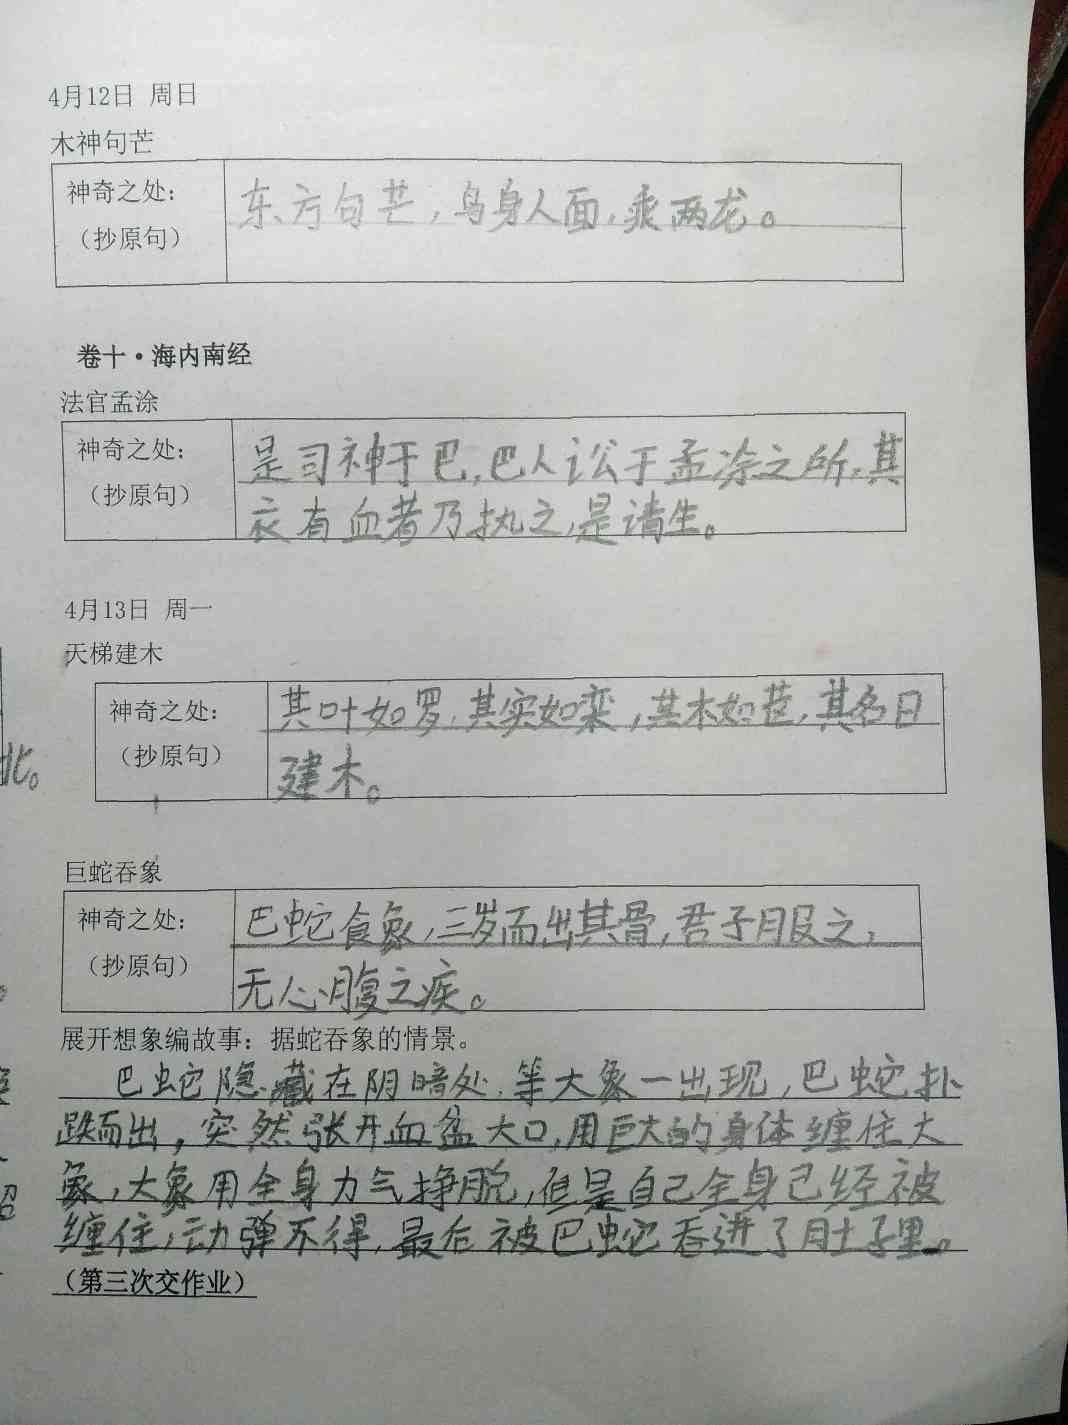 4月12日 周日
木神句芒
神奇之处：
（抄原句）
东方句芒，鸟身人面，乘两龙。
卷十·海内南经
法官孟涂
神奇之处：
（抄原句）
是司神于巴，巴人讼于孟涂之所，其
衣有血者乃执之，是请生。
4月13日 周一
天梯建木
神奇之处：
（抄原句）
其叶如罗，其实如栾，其木如苉，其名曰
建木。
北。
巨蛇吞象
神奇之处：
（抄原句）
巴蛇食象，三岁而出其骨，君子服之，
无心腹之疾。
展开想象编故事：据蛇吞象的情景。
巴蛇隐藏在阴暗处，等大象一出现，巴蛇扑
跌而出，突然张开血盆大口，用巨大的身体缠住大
象，大象用全身力气挣脱，但是自己全身已经被
缠住，动弹不得，最后被巴蛇吞进了肚子里。
（第三次交作业）